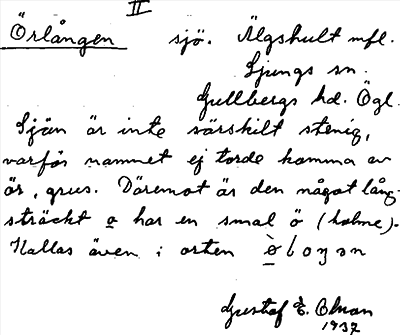 II
Örlången sjö. Älgshult mfl.
Ljungs sn.
Gullbergs hd. Ögl.
Sjön är inte särskilt stenig,
varför namnet ej torde komma av
ör, grus. Däremot är den något lång-
sträckt o har en smal ö (holme).
Kallas även i orten
Gustaf E. Olman
1937